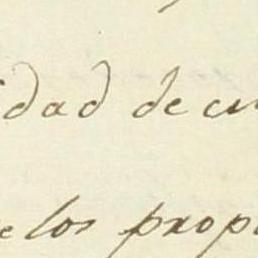 idad de cu
e los prop